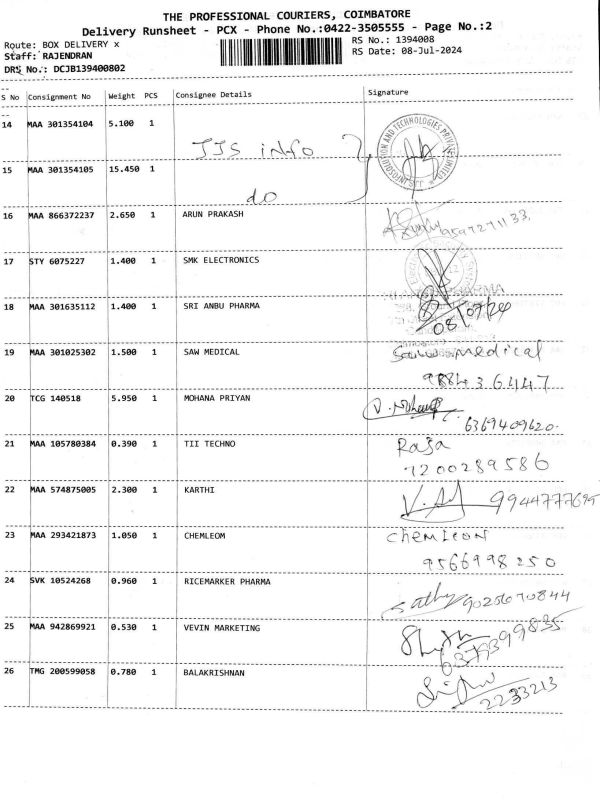 THE PROFESSIONAL COURIERS, COIMBATORE
Delivery Runsheet - PCX - Phone No.:0422-3505555 - Page No.:2
Route: BOX DELIVERY x
RS No.: 1394008
Staff: RAJENDRAN
RS Date: 08-Jul-2024
DRS No.: DCJB139400802
S No Consignment No Weight PCS Consignee Details Signature
14 MAA 301354104 5.100 1 JJS info
15 MAA 301354105 15.450 1 do
16 MAA 866372237 2.650 1 ARUN PRAKASH
17 STY 6075227 1.400 1 SMK ELECTRONICS
18 MAA 301635112 1.400 1 SRI ANBU PHARMA 08/07/24
19 MAA 301025302 1.500 1 SAW MEDICAL Saw medical
9884 3 6447
20 TCG 140518 5.950 1 MOHANA PRIYAN
6369409620
21 MAA 105780384 0.390 1 TII TECHNO Raja
7200289586
22 MAA 574875005 2.300 1 KARTHI 9944777695
23 MAA 293421873 1.050 1 CHEMLEOM chemleon
9566998250
24 SVK 10524268 0.960 1 RICEMARKER PHARMA Sathy 9025670844
25 MAA 942869921 0.530 1 VEVIN MARKETING
6379399835
26 TMG 200599058 0.780 1 BALAKRISHNAN
2233213